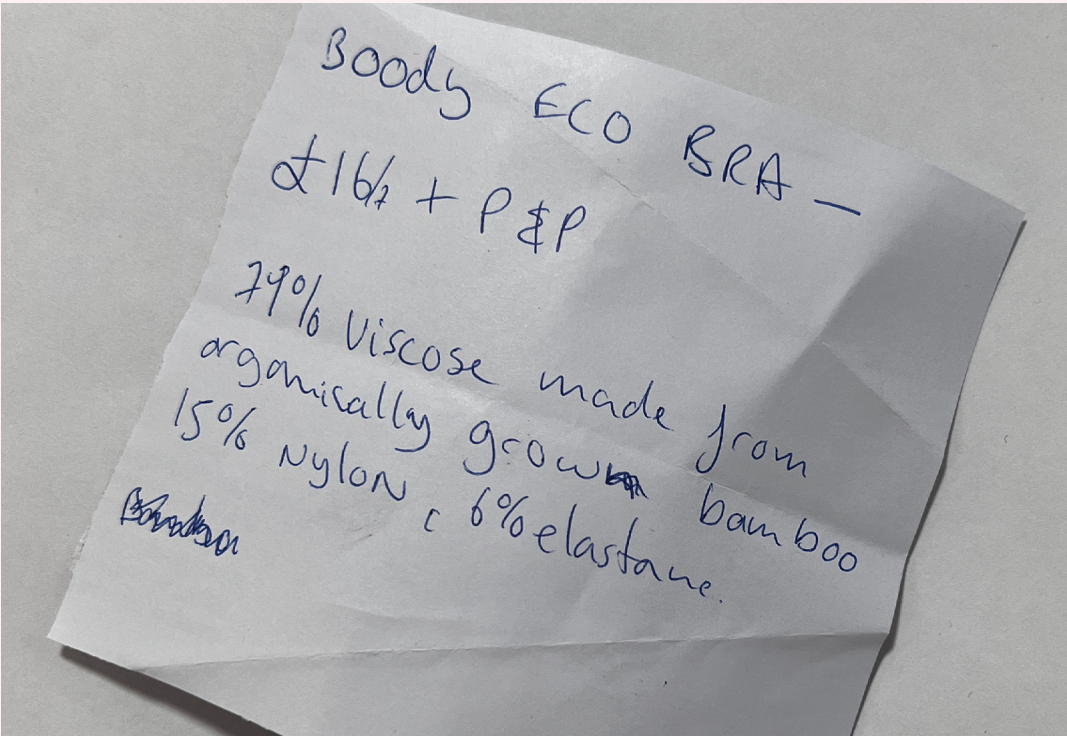 Boody ECO BRA –
£16/- + P&P
79% Viscose made from
organically grown bamboo
15% Nylon, 6% elastane.